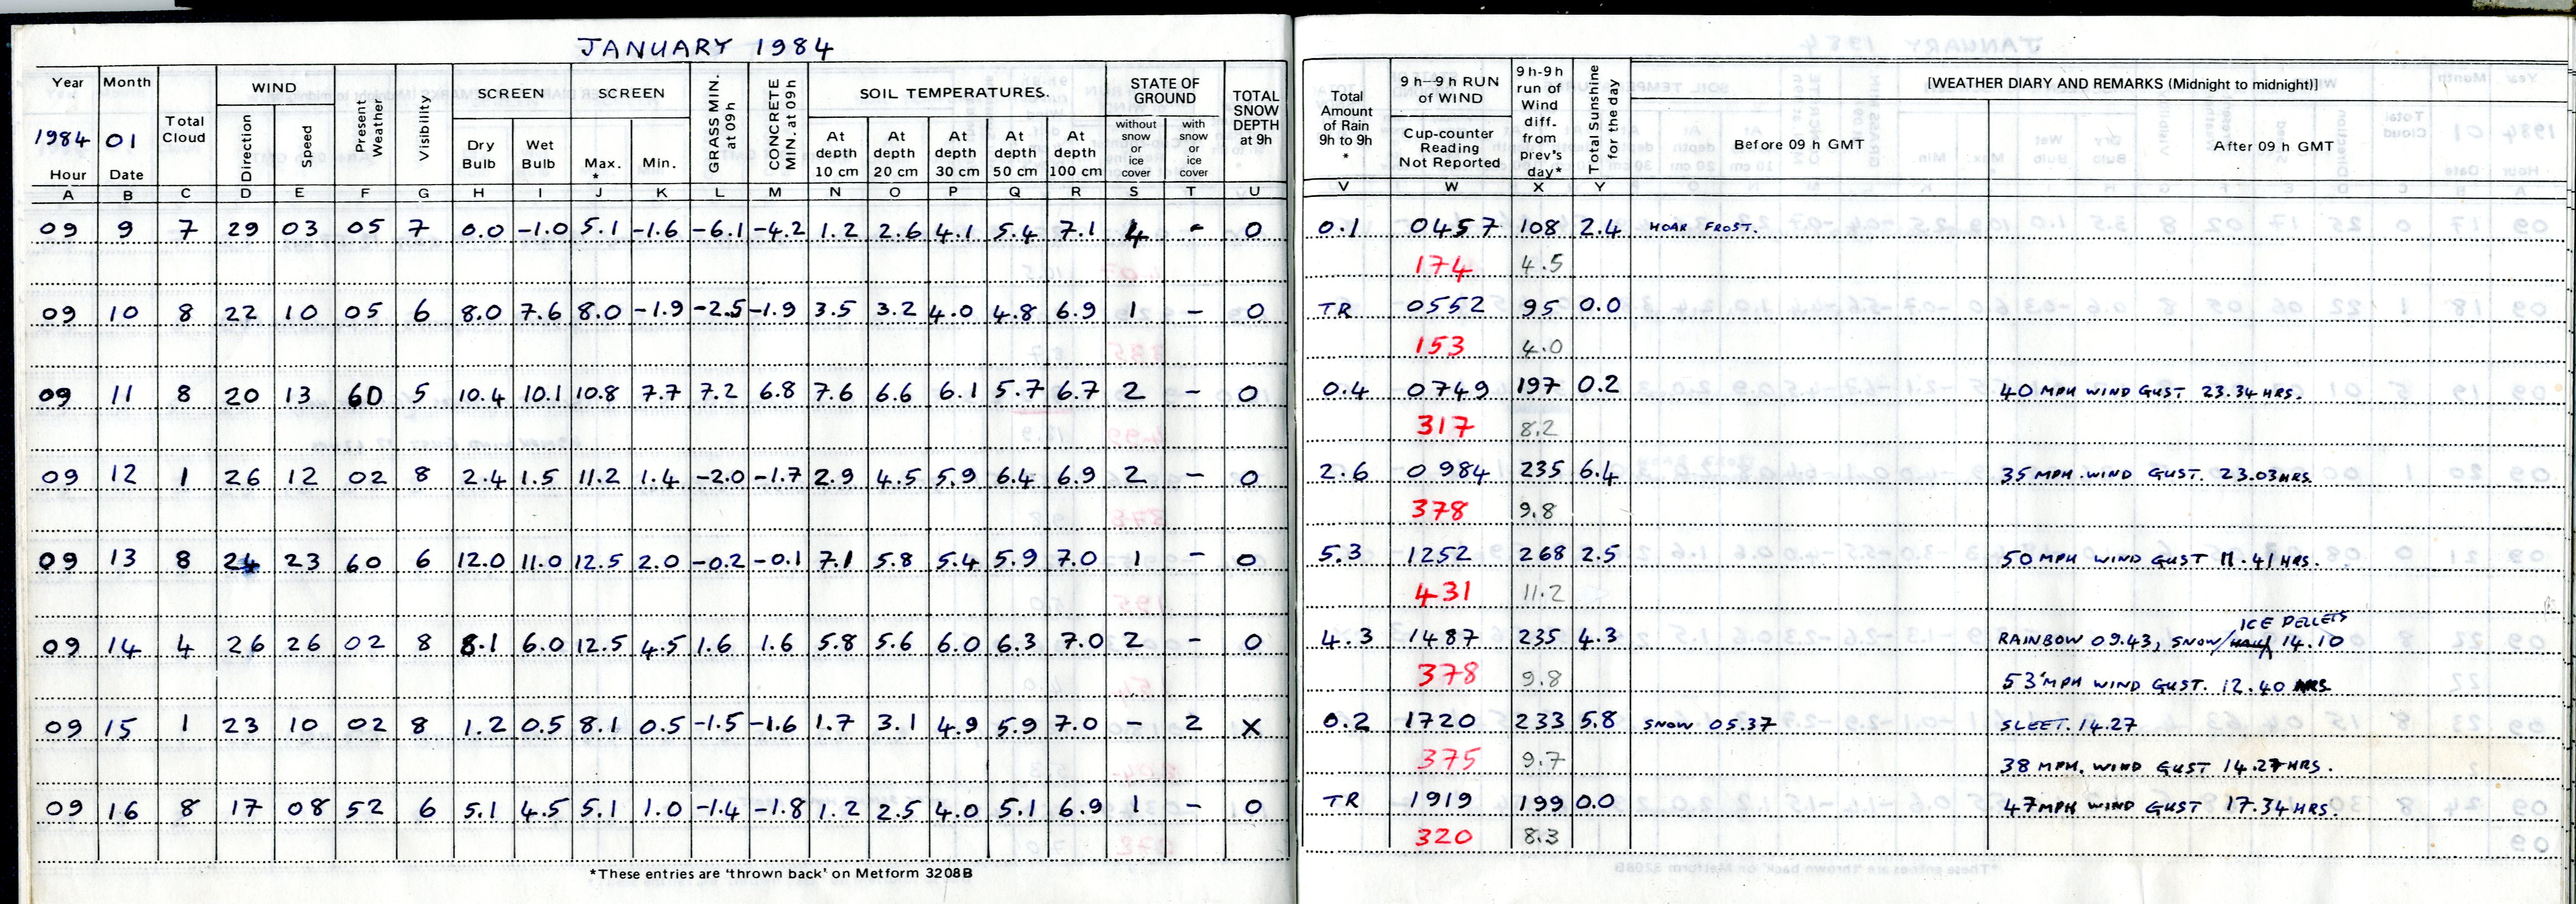 JANUARY 1984
Year Month Total Cloud WIND Direction Speed Present Weather Visibility SCREEN Dry Bulb Wet Bulb SCREEN Max. * Min. GRASS MIN. at 09h CONCRETE MIN. at 09h SOIL TEMPERATURES. At depth 10 cm At depth 20 cm At depth 30 cm At depth 50 cm At depth 100 cm STATE OF GROUND without snow or ice cover with snow or ice cover TOTAL SNOW DEPTH at 9h Total Amount of Rain 9h to 9h * 9 h–9 h RUN of WIND Cup-counter Reading Not Reported 9 h-9h run of Wind diff. from prev's day* Total Sunshine for the day [WEATHER DIARY AND REMARKS (Midnight to midnight)] Before 09 h GMT After 09 h GMT
1984 01
Hour Date
A B C D E F G H I J K L M N O P Q R S T U V W X Y
09 9 7 29 03 05 7 0.0 -1.0 5.1 -1.6 -6.1 -4.2 1.2 2.6 4.1 5.4 7.1 4 - 0 0.1 0457 108 2.4 HOAR FROST.
174 4.5
09 10 8 22 10 05 6 8.0 7.6 8.0 -1.9 -2.5 -1.9 3.5 3.2 4.0 4.8 6.9 1 - 0 TR 0552 95 0.0
153 4.0
09 11 8 20 13 60 5 10.4 10.1 10.8 7.7 7.2 6.8 7.6 6.6 6.1 5.7 6.7 2 - 0 0.4 0749 197 0.2 40 MPH WIND GUST 23.34 HRS.
317 8.2
09 12 1 26 12 02 8 2.4 1.5 11.2 1.4 -2.0 -1.7 2.9 4.5 5.9 6.4 6.9 2 - 0 2.6 0984 235 6.4 35 MPH. WIND GUST. 23.03 HRS.
378 9.8
09 13 8 24 23 60 6 12.0 11.0 12.5 2.0 -0.2 -0.1 7.1 5.8 5.4 5.9 7.0 1 - 0 5.3 1252 268 2.5 50 MPH WIND GUST 11.41 HRS.
431 11.2
ICE PELLETS
09 14 4 26 26 02 8 8.1 6.0 12.5 4.5 1.6 1.6 5.8 5.6 6.0 6.3 7.0 2 - 0 4.3 1487 235 4.3 RAINBOW 09.43, SNOW/ 14.10
378 9.8 53 MPH WIND GUST. 12.40 HRS
09 15 1 23 10 02 8 1.2 0.5 8.1 0.5 -1.5 -1.6 1.7 3.1 4.9 5.9 7.0 - 2 X 0.2 1720 233 5.8 SNOW 05.37 SLEET. 14.27
375 9.7 38 MPH. WIND GUST 14.27 HRS.
09 16 8 17 08 52 6 5.1 4.5 5.1 1.0 -1.4 -1.8 1.2 2.5 4.0 5.1 6.9 1 - 0 TR 1919 199 0.0 47 MPH WIND GUST 17.34 HRS.
320 8.3
*These entries are 'thrown back' on Metform 3208B